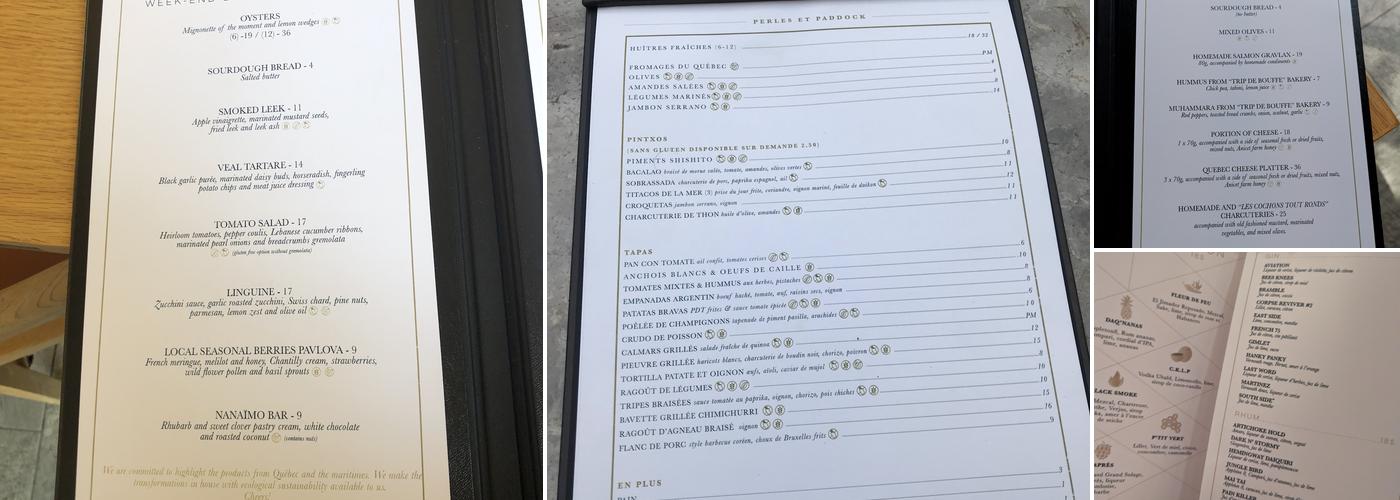 WEEK-END
OYSTERS
Mignonette of the moment and lemon wedges
(6) -19 / (12) - 36
SOURDOUGH BREAD - 4
Salted butter
SMOKED LEEK - 11
Apple vinaigrette, marinated mustard seeds,
fried leek and leek ash
VEAL TARTARE - 14
Black garlic purée, marinated daisy buds, horseradish, fingerling
potato chips and meat juice dressing
TOMATO SALAD - 17
Heirloom tomatoes, pepper coulis, Lebanese cucumber ribbons,
marinated pearl onions and breadcrumbs gremolata
(gluten free option without gremolata)
LINGUINE - 17
Zucchini sauce, garlic roasted zucchini, Swiss chard, pine nuts,
parmesan, lemon zest and olive oil
LOCAL SEASONAL BERRIES PAVLOVA - 9
French meringue, melilot and honey, Chantilly cream, strawberries,
wild flower pollen and basil sprouts
NANAÏMO BAR - 9
Rhubarb and sweet clover pastry cream, white chocolate
and roasted coconut (contains nuts)
We are committed to highlight the products from Québec and the maritimes. We make the
transformations in house with ecological sustainability available to us.
Cheers!
PERLES ET PADDOCK
HUÎTRES FRAÎCHES (6-12) 18 / 32
FROMAGES DU QUÉBEC PM
OLIVES 4
AMANDES SALÉES 4
LÉGUMES MARINÉS
JAMBON SERRANO 14
PINTXOS
(SANS GLUTEN DISPONIBLE SUR DEMANDE 2.50)
PIMENTS SHISHITO 10
BACALAO braisé de morue salée, tomate, amandes, olives vertes 8
SOBRASSADA charcuterie de porc, paprika espagnol, ail 11
TITACOS DE LA MER (3) prise du jour frite, coriandre, oignon mariné, feuille de daikon 12
CROQUETAS jambon serrano, oignon 11
CHARCUTERIE DE THON huile d'olive, amandes 11
TAPAS
PAN CON TOMATE ail confit, tomates cerises 6
ANCHOIS BLANCS & OEUFS DE CAILLE 10
TOMATES MIXTES & HUMMUS aux herbes, pistaches
EMPANADAS ARGENTIN boeuf haché, tomate, œuf, raisins secs, oignon
PATATAS BRAVAS PDT frites & sauce tomate épicée
POÊLÉE DE CHAMPIGNONS tapenade de piment pasilla, arachides
CRUDO DE POISSON PM
CALMARS GRILLÉS salade fraîche de quinoa 12
PIEUVRE GRILLÉE haricots blancs, charcuterie de boudin noir, chorizo, poivron 15
TORTILLA PATATE ET OIGNON œufs, aïoli, caviar de mujol 8
RAGOÛT DE LÉGUMES 10
TRIPES BRAISÉES sauce tomatée au paprika, oignon, chorizo, pois chiches 10
BAVETTE GRILLÉE CHIMICHURRI 15
RAGOÛT D'AGNEAU BRAISÉ oignon 16
FLANC DE PORC style barbecue coréen, choux de Bruxelles frits 9
EN PLUS
PAIN
SOURDOUGH BREAD - 4
(no butter)
MIXED OLIVES - 11
HOMEMADE SALMON GRAVLAX - 19
80g, accompanied by homemade condiments
HUMMUS FROM "TRIP DE BOUFFE" BAKERY - 7
Chick pea, tahini, lemon juice
MUHAMMARA FROM "TRIP DE BOUFFE" BAKERY - 9
Red peppers, toasted bread crumbs, onion, walnut, garlic
PORTION OF CHEESE - 18
1 x 70g, accompanied with a side of seasonal fresh or dried fruits,
mixed nuts, Anicet farm honey
QUEBEC CHEESE PLATTER - 36
3 x 70g, accompanied with a side of seasonal fresh or dried fruits, mixed nuts,
Anicet farm honey
HOMEMADE AND "LES COCHONS TOUT RONDS"
CHARCUTERIES - 25
accompanied with old fashioned mustard, marinated
vegetables, and mixed olives.
DAQ'NANAS
FLEUR DE FEU
El Jimador Reposado, Mezcal,
Habanero
C.R.L.P
LACK SMOKE
Mezcal, Chartreuse,
P'TIT VERT
Lillet, Vert de miel, citron,
concombre, camomille
APRÈS
GIN
AVIATION
BEES KNEES
BRAMBLE
CORPSE REVIVER #2
EAST SIDE
FRENCH 75
GIMLET
HANKY PANKY
LAST WORD
MARTINEZ
SOUTH SIDE
RHUM
ARTICHOKE HOLD
DARK N' STORMY
HEMINGWAY DAIQUIRI
JUNGLE BIRD
MAI TAI
PAIN KILLER